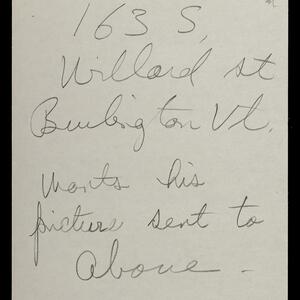 163 S,
Willard st
Burlington Vt.
Wants his
picture sent to
above -